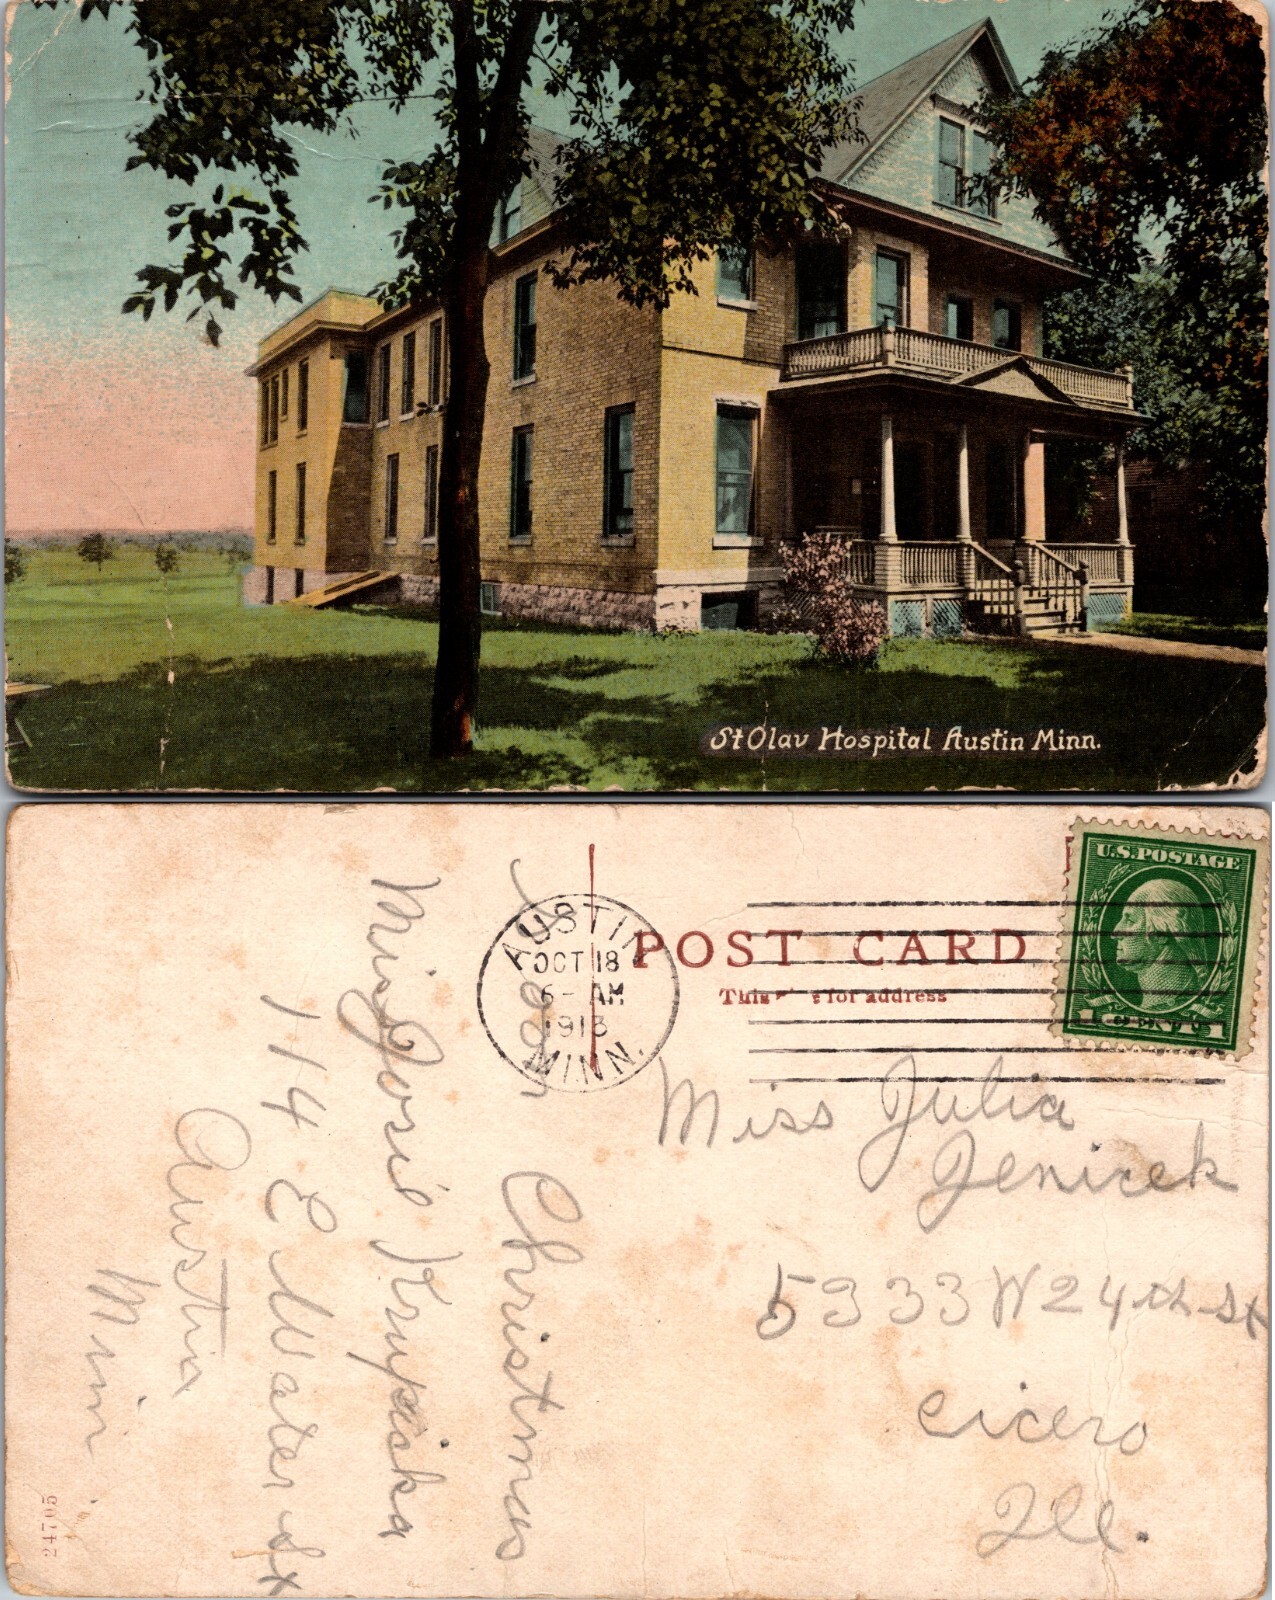 St Olav Hospital Austin Minn.
U.S. POSTAGE
AUSTIN
OCT 18
6- AM
1913
MINN.
POST CARD
for address
Miss Julia
Jenicek
5933 W 24th St
Cicero
Ill.
Christmas
Miss Josie Krupicka
114 E Water St
Austin
Minn
24705